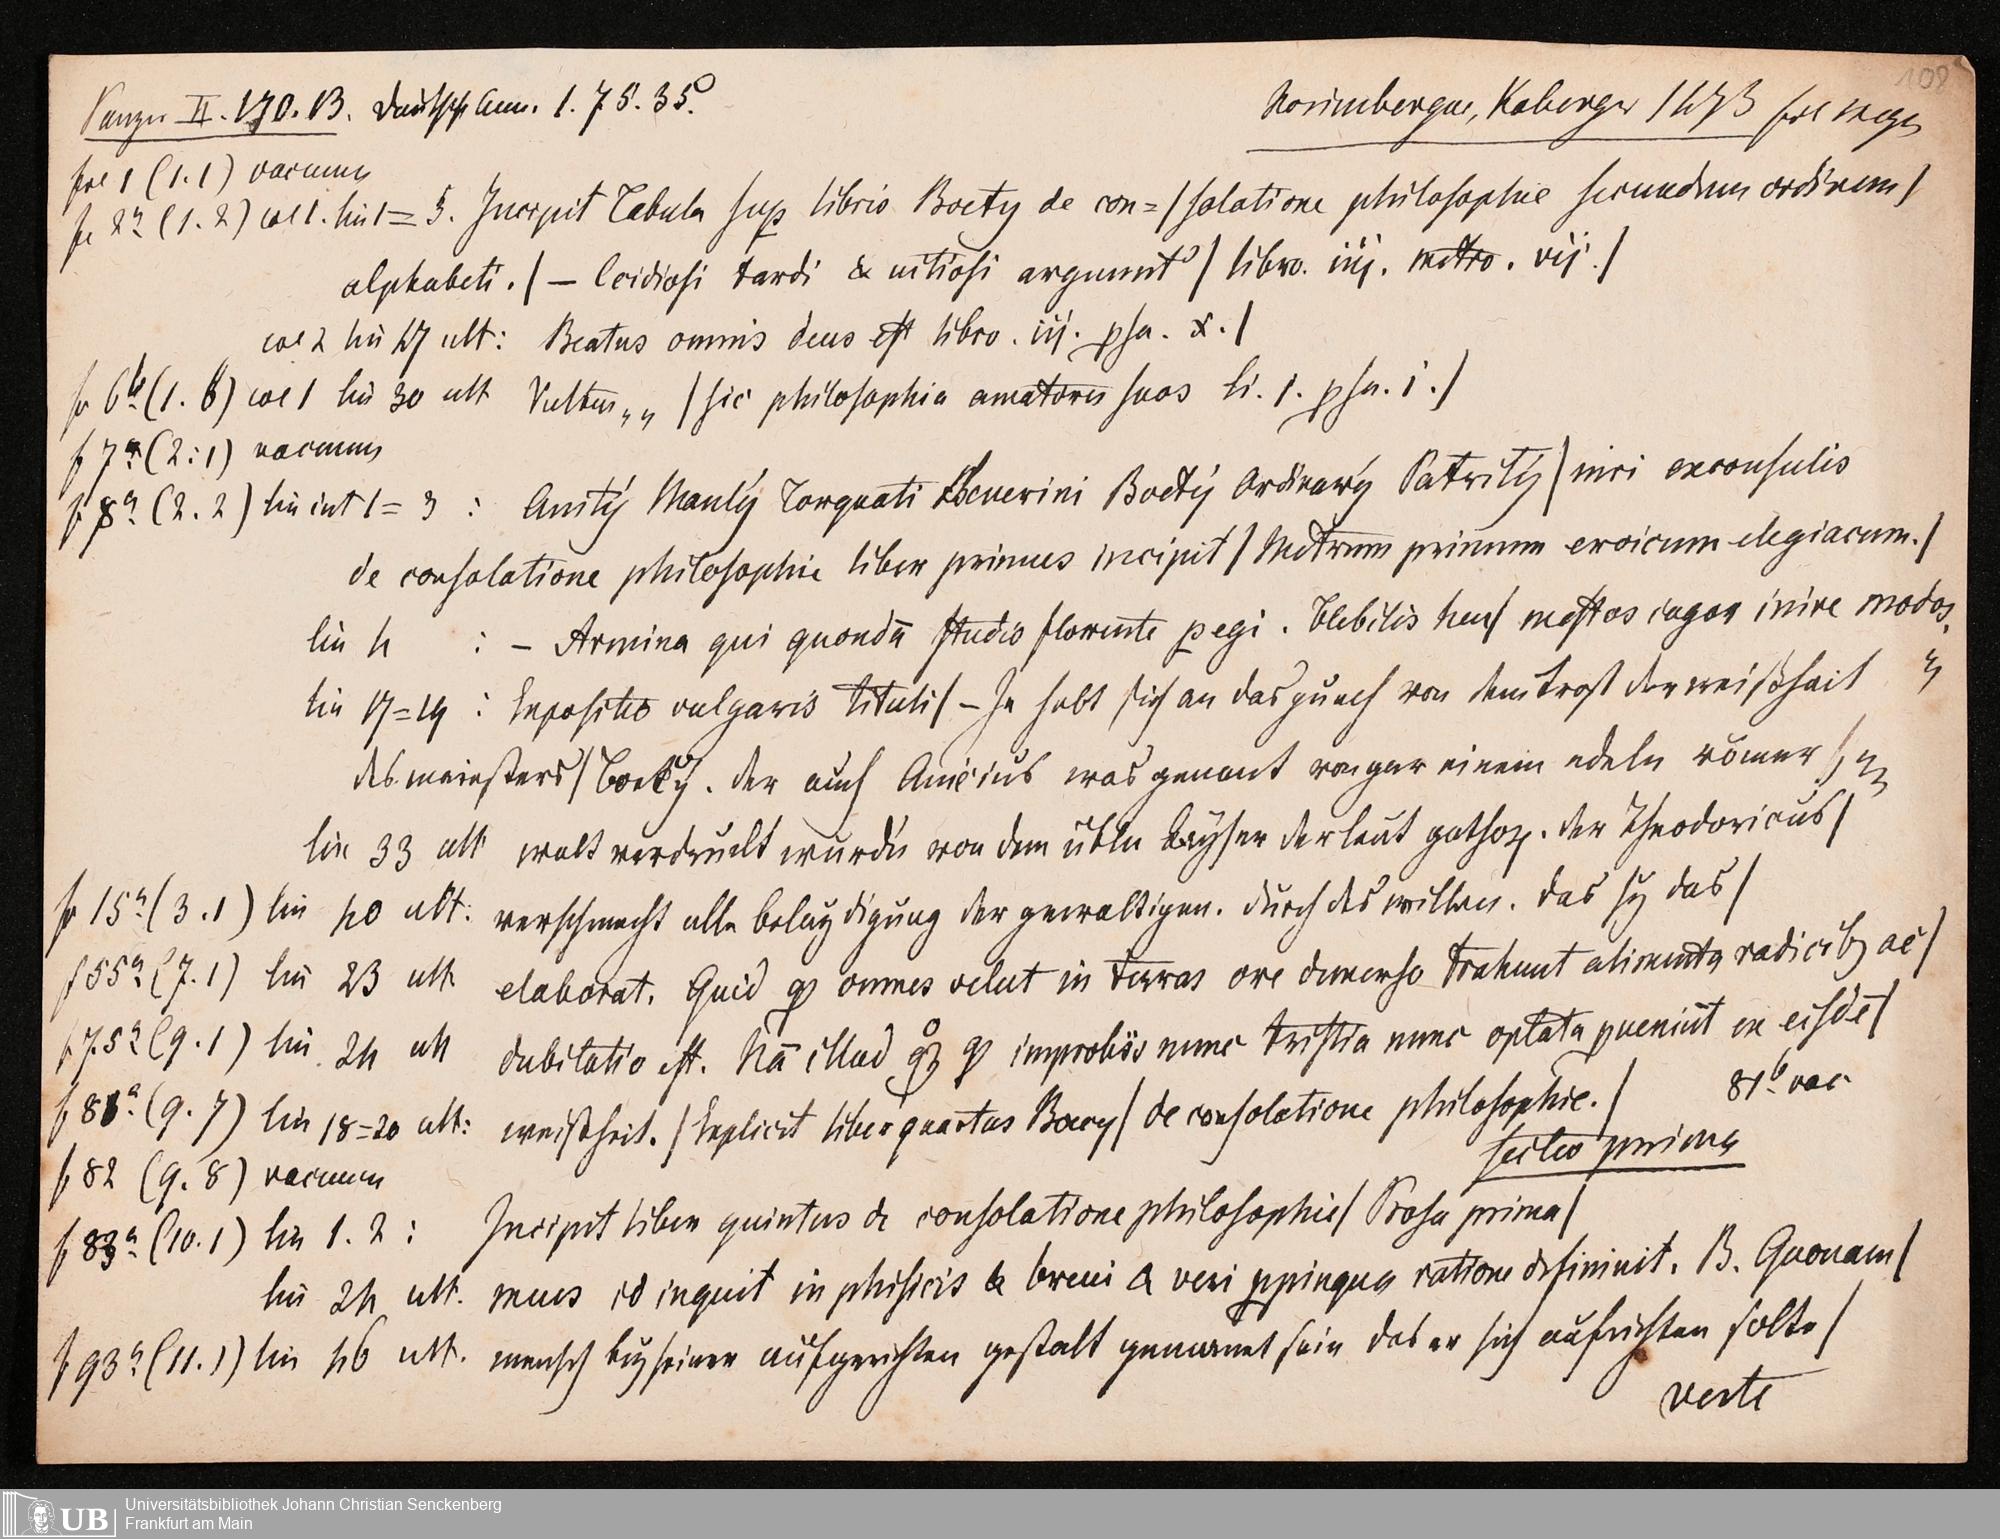 108
Panzer II. 170. 13. Deutsch Ann. 1. 75. 35.
Norimbergae, Koberger 1473 fol
fol 1 (1.1) vacuum
fo 2a (1.2) col 1. lin 1=3. Incipit Tabula sup libris Boety de con=/solatione philosophie secundum ordinem/
alphabeti. / — arguunt / libro. iiij. metro. vij. /
col 2 lin 47 ult: Beatus omnis deus est libro. iij. psa. x. /
fo 6b (1.6) col 1 lin 30 ult Vultum „ „ / sic philosophia amatores suos li. 1. psa. i. /
f 7a (2.1) vacuum
f 8a (2.2) lin int 1=3 : Anitÿ Manlÿ Torquati Seuerini Boetÿ Ordinarÿ Patritÿ / viri exconsulis
de consolatione philosophie liber primus incipit / Metrum primum eroicum elegiacum. /
lin 4 : — Armina qui quondā studio florente pegi. Flebilis heu / mestos cogor inire modos.
lin 17=19 : Expositio vulgaris tituli / — Je hebt sich an das puech von dem trost der weißhait
des maiesters / Boecÿ. der auch Anicius was genant von gar einem edeln römer
lin 33 ult walt verdruckt wurdē von dem übln kayser der leut gothoꝝ. der Theodoricus /
fo 15a (3.1) lin 40 ult: verschmecht alle belaydigung der gewaltigen. durch des willen. das sy das /
f 55a (7.1) lin 23 ult elaborat. Quid ꝙ omnes velut in terras ore demerso trahunt alimenta radicibꝫ ac /
f 75a (9.1) lin 24 ult dubitatio est. Nā illud ꝙ improbis nunc tristia nunc optata pueniūt ex eisdē /
f 81a (9.7) lin 18=20 ult: weißheit. / Explicit liber quartus Boecy / de consolatione philosophie. / 81b vac
sectio prima
f 82 (9.8) vacuum
f 83a (10.1) lin 1. 2 : Incipit liber quintus de consolatione philosophie / Prosa prima /
lin 24 ult. meus id inquit in phisicis & breui & veri ppinqua ratione definiuit. B. Quonam /
f 93a (11.1) lin 46 ult. mensch bey seiner aufgerichten gestalt gemanet sein das er sich aufrichten solte /
verte
UB
Universitätsbibliothek Johann Christian Senckenberg
Frankfurt am Main